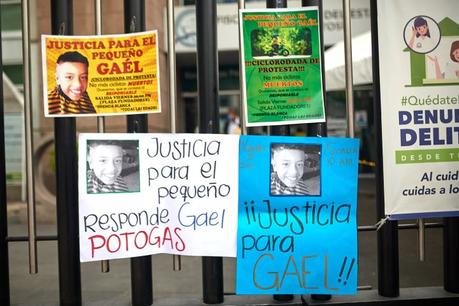 JUSTICIA PARA EL
PEQUEÑO
GAËL
CICLORODADA DE
PROTESTA
No más ciclistas
MUERTOS
SALIDA VIERNES
(PLAZA FUNDADORES)
JUSTICIA PARA
EL PEQUEÑO GAËL
¡¡¡CICLORODADA DE
PROTESTA!!!
No más ciclistas
MUERTOS
Salida Viernes
(PLAZA FUNDADORES)
Justicia
para el
pequeño
Responde Gael
POTOGAS
¡¡Justicia
para
GAEL!!
#Quédate
DENU
DELIT
DESDE T
Al cuid
cuidas a lo